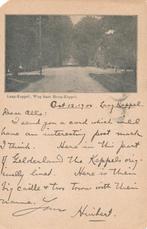 Laag-Keppel, Weg naar Hoog-Keppel.
Oct 12. '00. Laag Keppel.
Dear Otto:
I send you a card which will
have an interesting post mark
I think. Here in this part
of Gelderland the Keppels orig-
inally lived. Here is their
big castle & two towns with their
name. Your